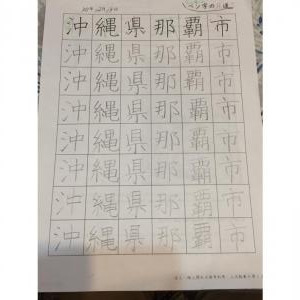 沖縄県那覇市
沖縄県那覇市
沖縄県那覇市
沖縄県那覇市
沖縄県那覇市
沖縄県那覇市
沖縄県那覇市
沖縄県那覇市